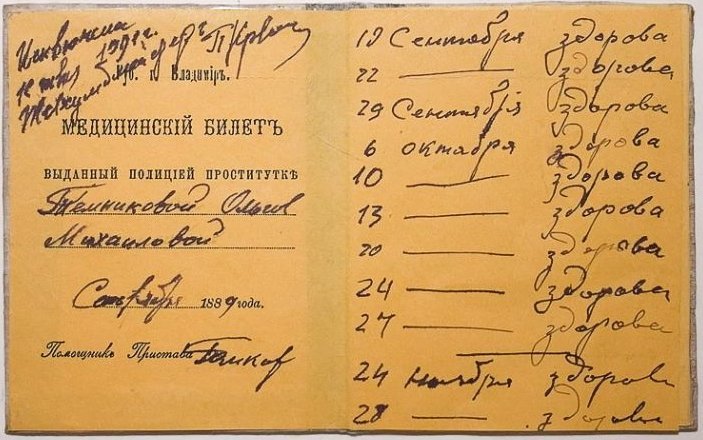 Губ. г. Владиміръ.
МЕДИЦИНСКІЙ БИЛЕТЪ
ВЫДАННЫЙ ПОЛИЦІЕЙ ПРОСТИТУТКѢ
Темниковой Ольгѣ
Михаиловой
188 9 года.
Помощникъ Пристава
19 Сентября здорова
22 — здорова
29 Сентября здорова
6 октября здорова
10 — здорова
13 — здорова
20 — здорова
24 — здорова
27 — здорова
24 ноября здорова
28 — здорова